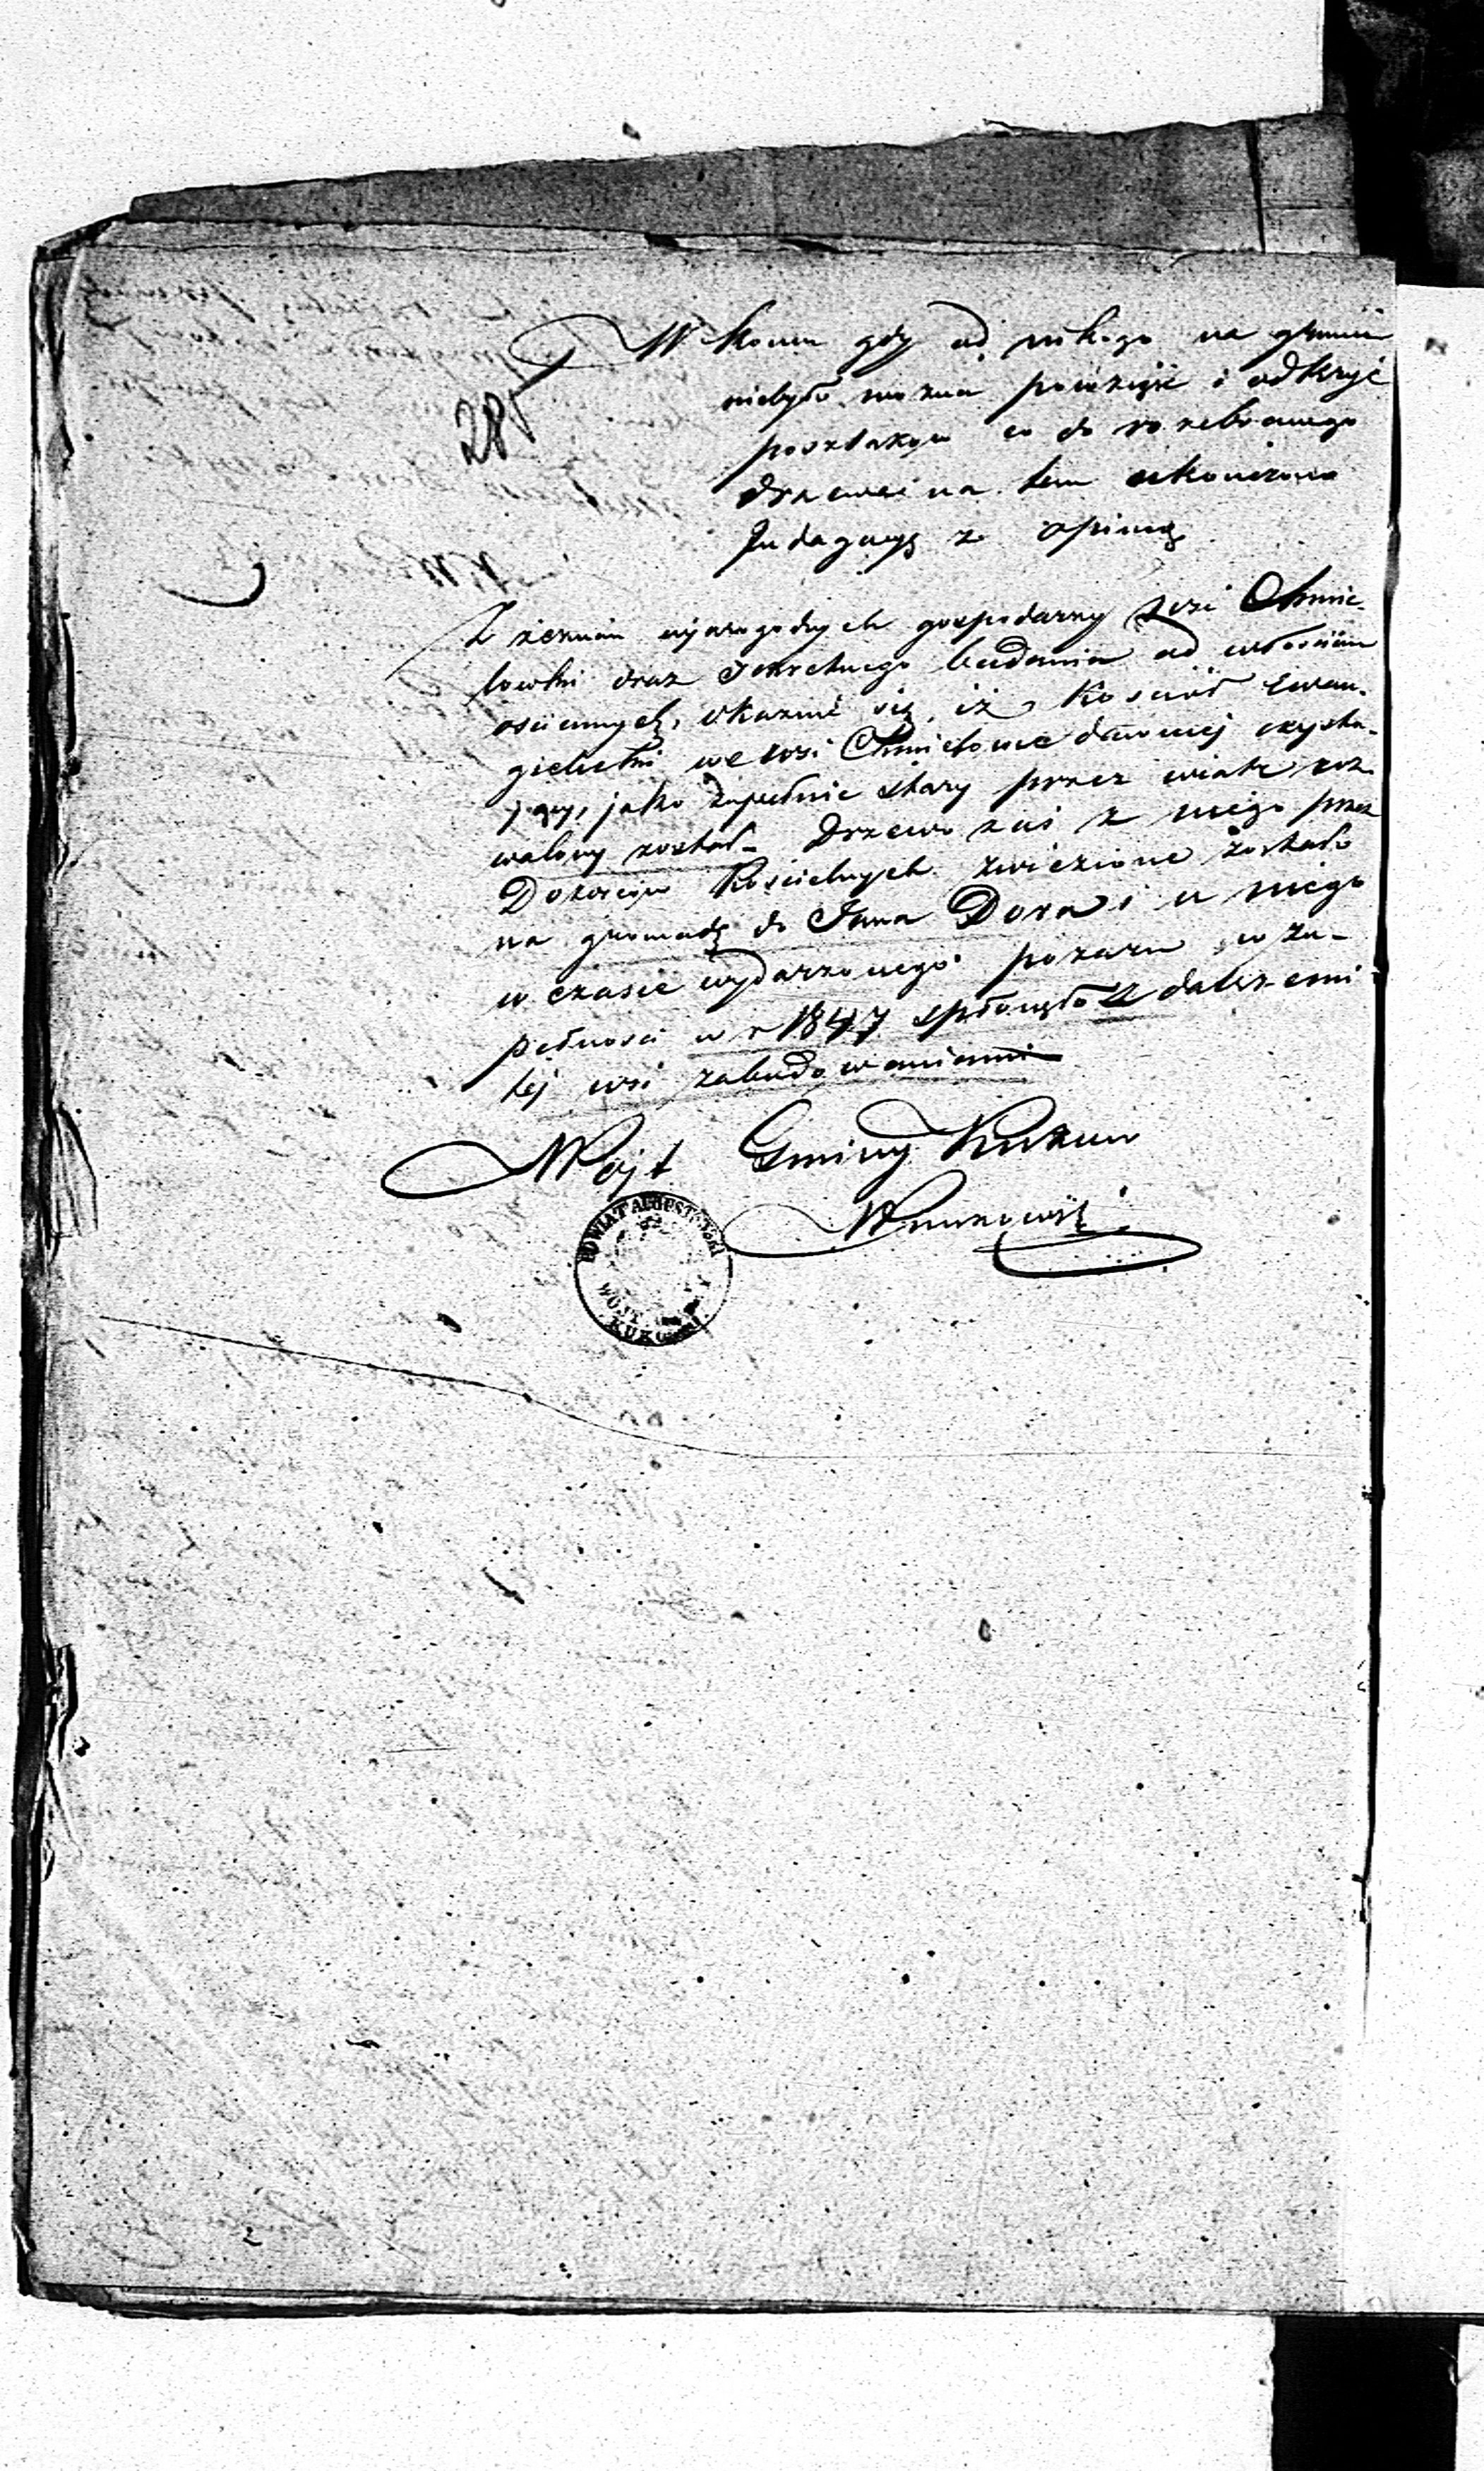 285
W koncu gdy od nikogo na gruncie
niebyło można powziąść i odkryć
poszlaków co do rozebranego
drzewa i na tem ukończono
Indagacyą z opinią
Z zeznań wiarogodnych gospodarzy wsi Chmie-
lowki oraz sekretnego badania od włościan
ościennych, okazuie się, iż Kosciół Ewan-
gielicki we wsi Chmielowce dawniej exystu-
jący, jako zupełnie stary przez wiatr roz-
walony został - Drzewo zaś z niego przez
Dozorców Kościelnych zwiezione zostało
na gromadę do Jana Dora i u niego
w czasie wydarzonego pożaru w zu-
pełności w r 1847 spłonęło z dalszemi
tej wsi zabudowaniami
Wójt Gminy Kukow
POWIAT AUGUSTOWSKI
WÓJT GMINY
KUKOW